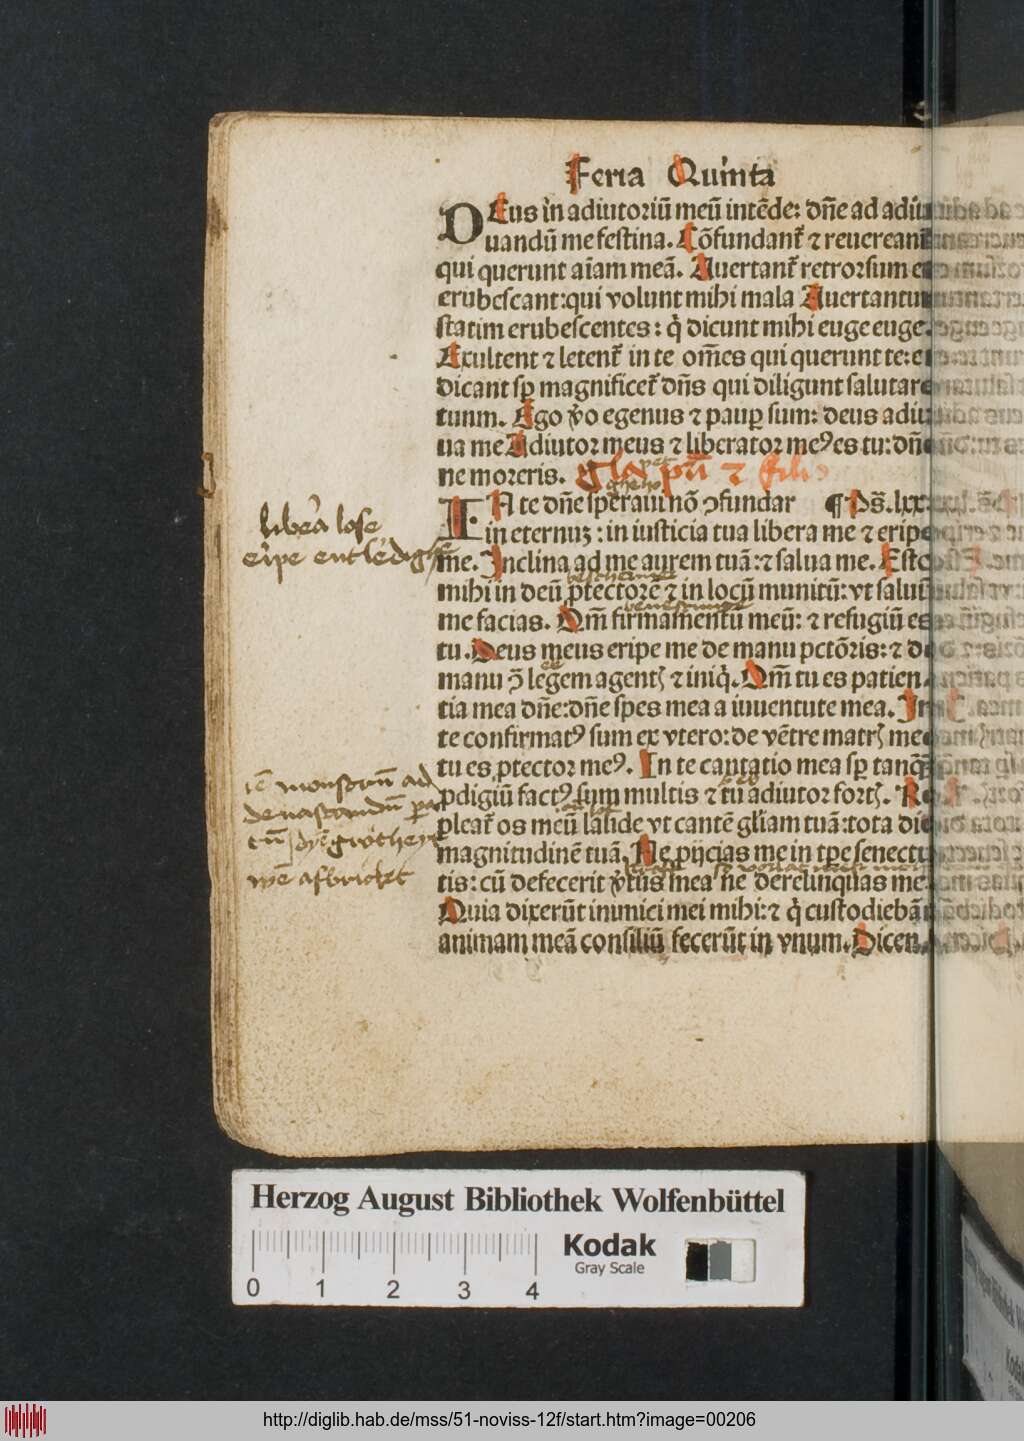 Feria Quinta
DEus in adiutoriū meū intēde: dn̄e ad adiu
uandū me festina. Cōfundant᷑ ⁊ reuereant᷑
qui querunt aīam meā. Auertant᷑ retrorsum et
erubescant: qui volunt mihi mala Auertantur
statim erubescentes: q̇ dicunt mihi euge euge.
Exultent ⁊ letent᷑ in te om̄es qui querunt te: et
dicant sꝑ magnificet᷑ dn̄s qui diligunt salutare
tuum. Ego v̾o egenus ⁊ pauꝑ sum: deus adiu
ua me Adiutor meus ⁊ liberator meꝰ es tu: dn̄e
ne moreris. Gl̄a pr̄i ⁊ filio
IN te dn̄e speraui nō ↄfundar ¶ Ps̄. lxx
in eternuꝫ: in iusticia tua libera me ⁊ eripe
me. Inclina ad me aurem tuā: ⁊ salua me. Esto
mihi in deū ꝓtectorē ⁊ in locū munitū: vt saluū
me facias. Qm̄ firmamentū meū: ⁊ refugiū es
tu. Deus meus eripe me de manu pctōris: ⁊ de
manu ↄ̄ legem agentꝭ ⁊ iniq̇. Qm̄ tu es patien
tia mea dn̄e: dn̄e spes mea a iuuentute mea. In
te confirmatꝰ sum ex vtero: de vētre matrꝭ mee
tu es ꝓtector meꝰ. In te cantatio mea sꝑ tanq̄
ꝓdigiū factꝰ sum multis ⁊ tu adiutor fortꝭ. Re
pleat᷑ os meū laude vt cantē gl̄iam tuā: tota die
magnitudinē tuā. Ne ꝓijcias me in tp̄e senectu
tis: cū defecerit v̾tus mea ne derelinquas me
Quia dixerūt inimici mei mihi: ⁊ q̇ custodiebāt
animam meā consiliū fecerūt in vnum. Dicen
libera lose
eripe entledighe
bescherme
Herzog August Bibliothek Wolfenbüttel
Kodak
Gray Scale
0 1 2 3 4
http://diglib.hab.de/mss/51-noviss-12f/start.htm?image=00206